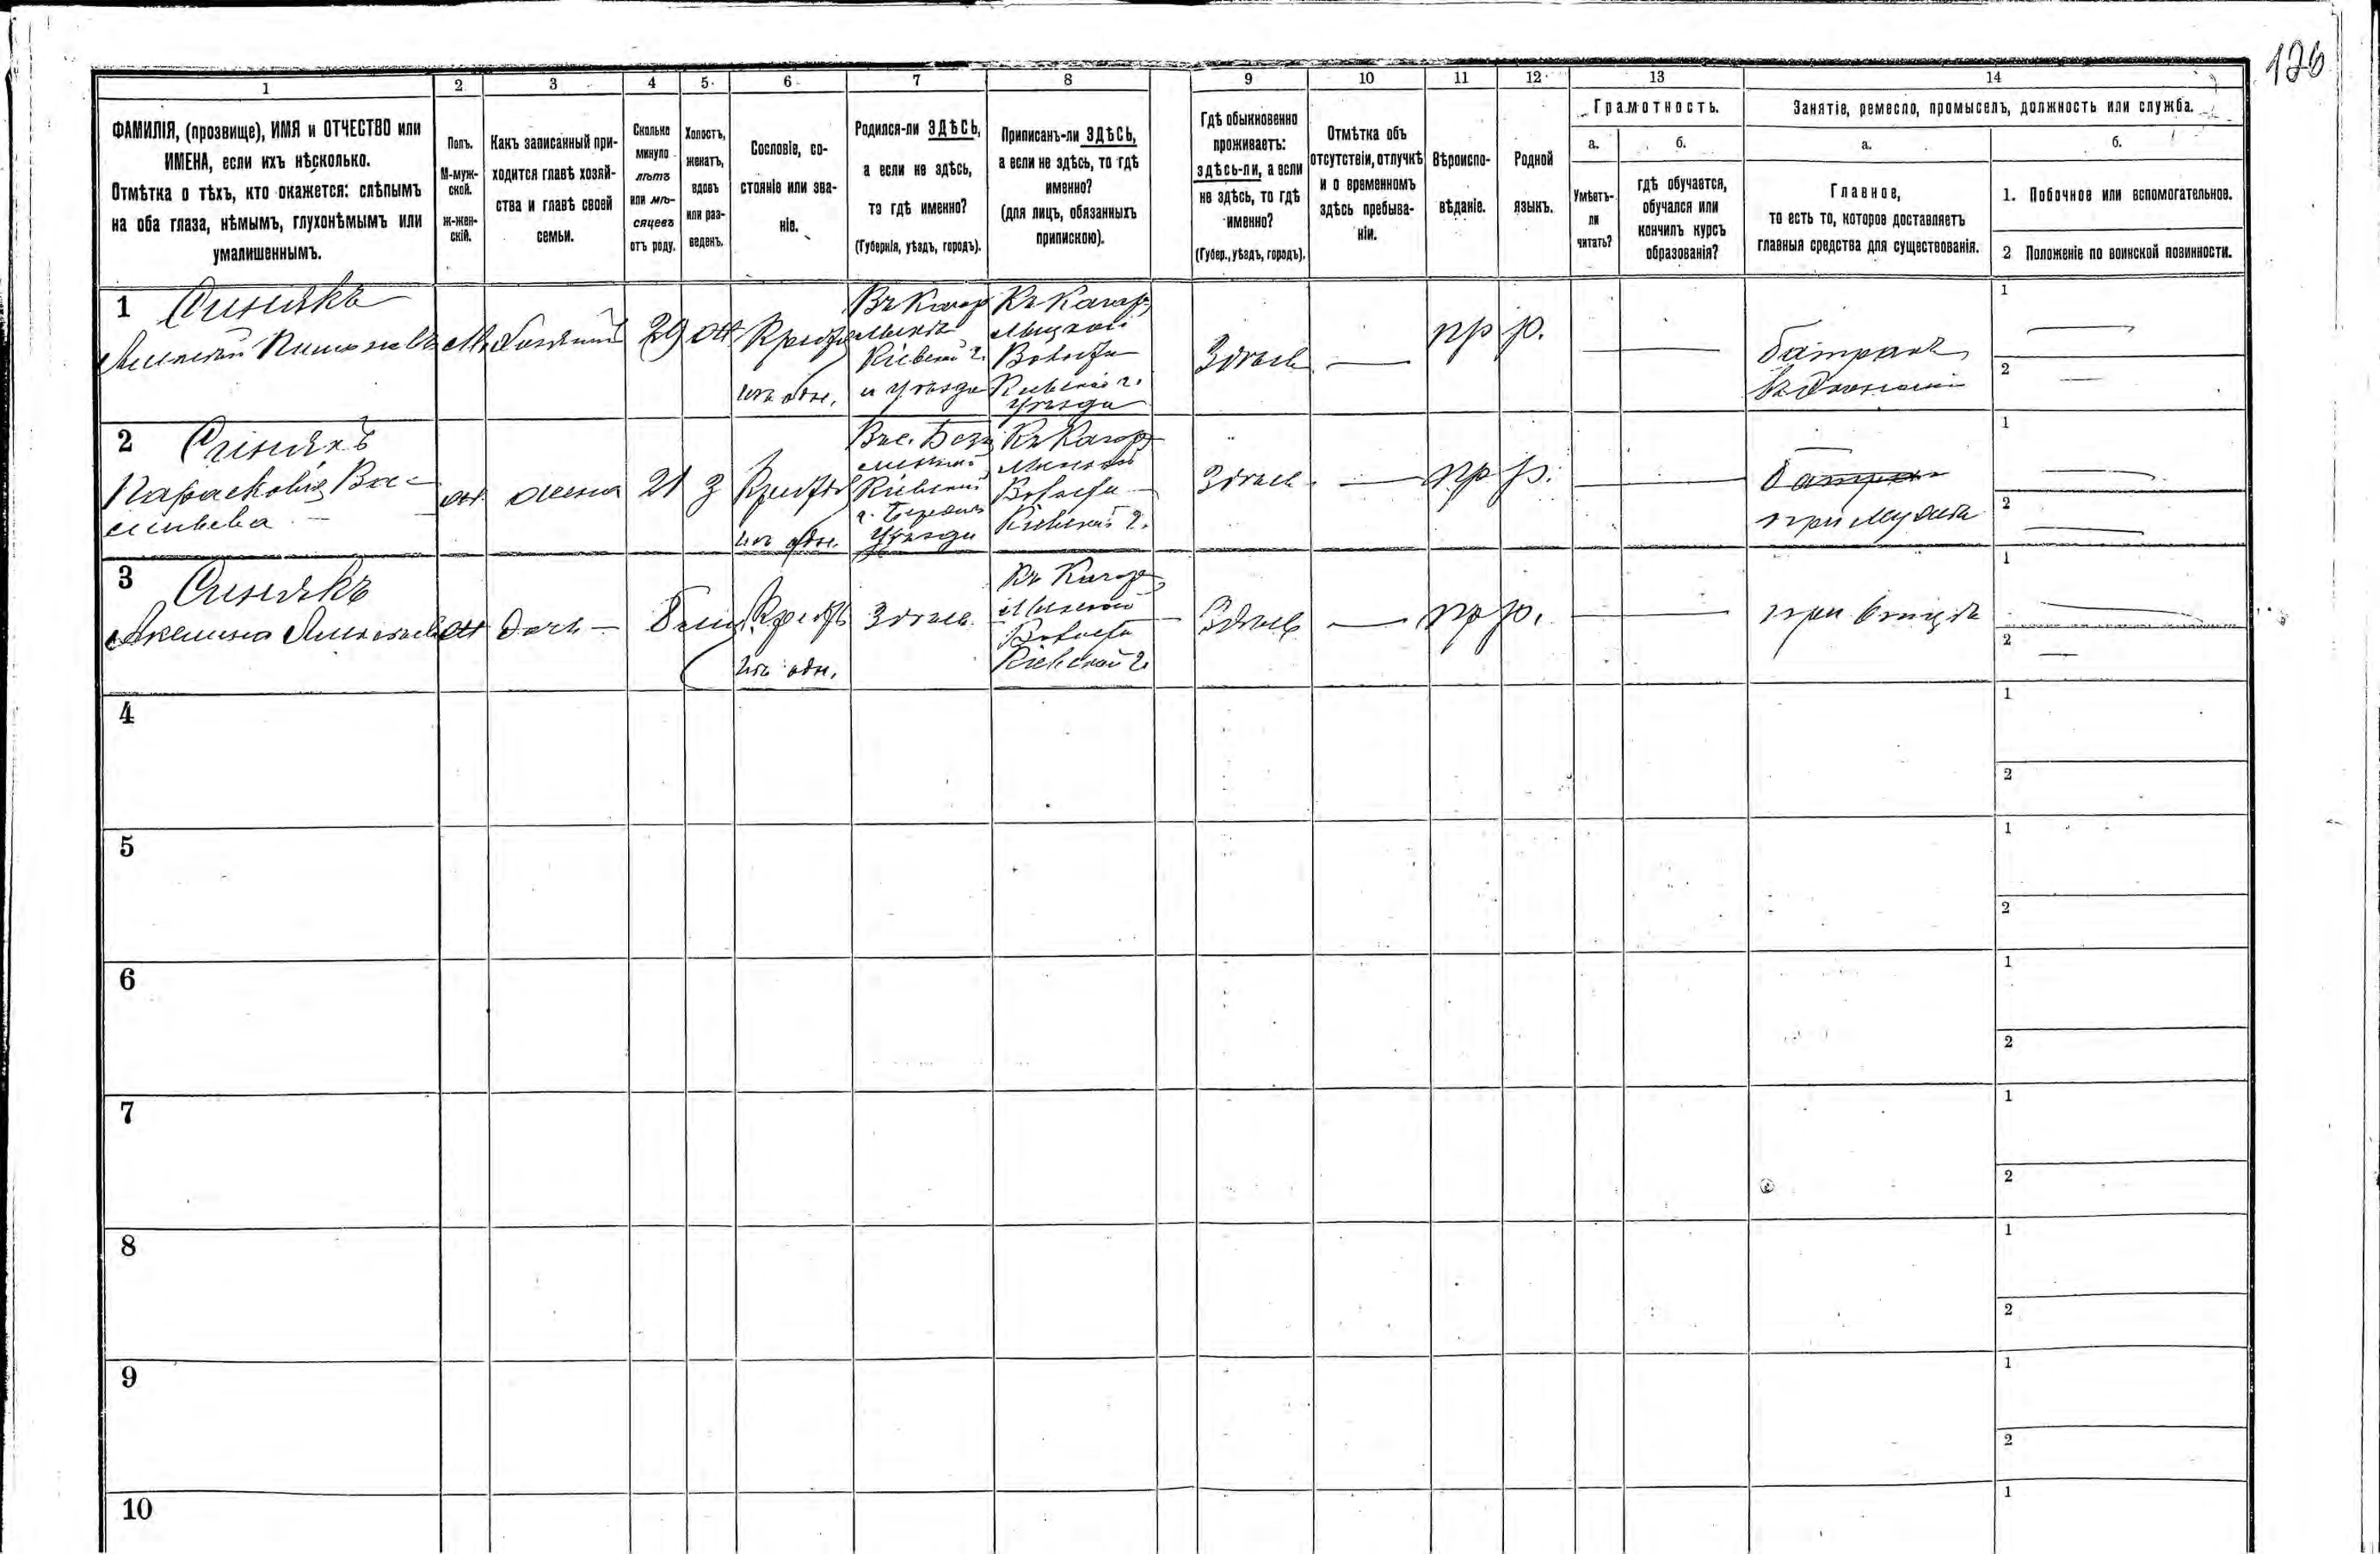 126
1 2 3 4 5 6 7 8 9 10 11 12 13 14
ФАМИЛІЯ, (прозвище), ИМЯ и ОТЧЕСТВО или
ИМЕНА, если ихъ нѣсколько.
Отмѣтка о тѣхъ, кто окажется: слѣпымъ
на оба глаза, нѣмымъ, глухонѣмымъ или
умалишеннымъ.
Полъ.
М-муж-
ской.
Ж-жен-
скій.
Какъ записанный при-
ходится главѣ хозяй-
ства и главѣ своей
семьи.
Сколько
минуло
лѣтъ
или мѣ-
сяцевъ
отъ роду.
Холостъ,
женатъ,
вдовъ
или раз-
веденъ.
Сословіе, со-
стояніе или зва-
ніе.
Родился-ли ЗДѢСЬ,
а если не здѣсь,
то гдѣ именно?
(Губернія, уѣздъ, городъ).
Приписанъ-ли ЗДѢСЬ,
а если не здѣсь, то гдѣ
именно?
(для лицъ, обязанныхъ
припискою).
Гдѣ обыкновенно
проживаетъ:
здѣсь-ли, а если
не здѣсь, то гдѣ
именно?
(Губер., уѣздъ, городъ).
Отмѣтка объ
отсутствіи, отлучкѣ
и о временномъ
здѣсь пребыва-
ніи.
Вѣроиспо-
вѣданіе.
Родной
языкъ.
Грамотность.
а.
Умѣетъ-
ли
читать?
б.
гдѣ обучается,
обучался или
кончилъ курсъ
образованія?
Занятіе, ремесло, промыселъ, должность или служба.
а.
Главное,
то есть то, которое доставляетъ
главныя средства для существованія.
б.
1. Побочное или вспомогательное.
2 Положеніе по воинской повинности.
1 Синякъ
М.
29
Крест
изъ обы.
Кіевской г.
и уѣзда
Волости
Кіевской г.
уѣзда
Здѣсь
пр
р.
батракъ
1
2
2 Синякъ
Парасковія Ва-
сильева
ж
жена
21
з
Крест
Кіевской
г.
уѣзда
Волости
Кіевской г.
Здѣсь
пр
р.
при мужѣ
1
2
3 Синякъ
ж
дочь
Крест
Здѣсь
Волости
Кіевской г.
Здѣсь
пр
р.
при отцѣ
1
2
4
1
2
5
1
2
6
1
2
7
1
2
8
1
2
9
1
2
10
1